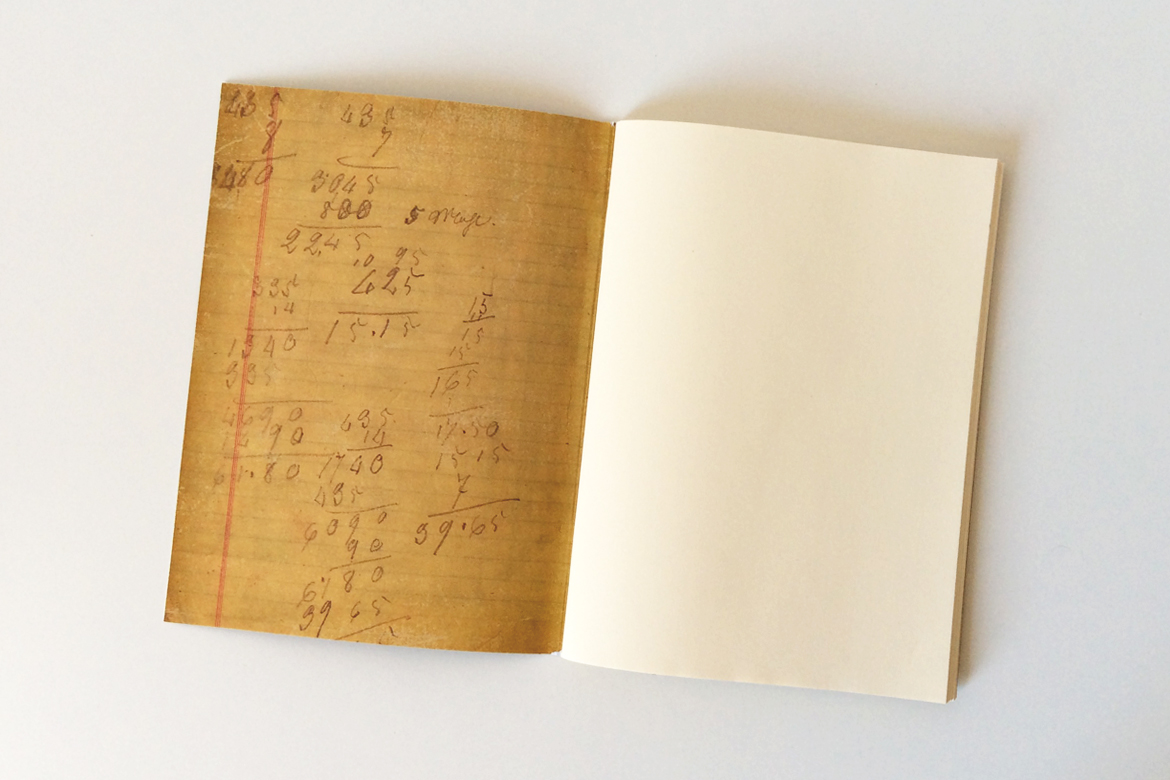 435 435
8 7
3480 3045
800
2245
10 95
425
335
14
15.15
15
15
1340
15
335
165
4690
1490
435
17.50
14
61.80
1740
15 15
435
7
6090
39.65
90
6180
39 65